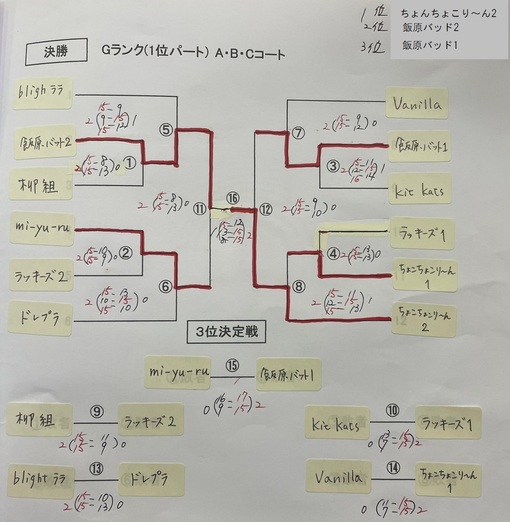 1位 ちょんちょこり～ん2
2位 飯原バッド2
3位 飯原バッド1
決勝 Gランク(1位パート) A・B・Cコート
blighララ
Vanilla
15-9
2(9-15)1
15-12
⑤
⑦
15-9
2(15-10)0
飯原バット2
飯原バット1
15-8
2(15-13)0
①
③
柳組
Kit Kats
15-8
2(15-13)0
⑪
⑯
⑫
15-9
2(15-10)0
mi-yu-ru
ラッキーズ1
②
④
15-13
2(15-13)0
ラッキーズ2
ちょこちょこり～ん
1
15-13
2(10-15)0
15-10
⑥
⑧
15-11
2(12-15)1
15-13
ドレプラ
ちょこちょこり～ん
2
3位決定戦
mi-yu-ru
⑮
飯原バット1
0(16-17
9-15)2
柳組
⑨
ラッキーズ2
Kit Kats
⑩
ラッキーズ1
2(15-11
15-9)0
blightララ
⑬
ドレプラ
Vanilla
⑭
ちょこちょこり～ん
1
2(15-10
15-13)0